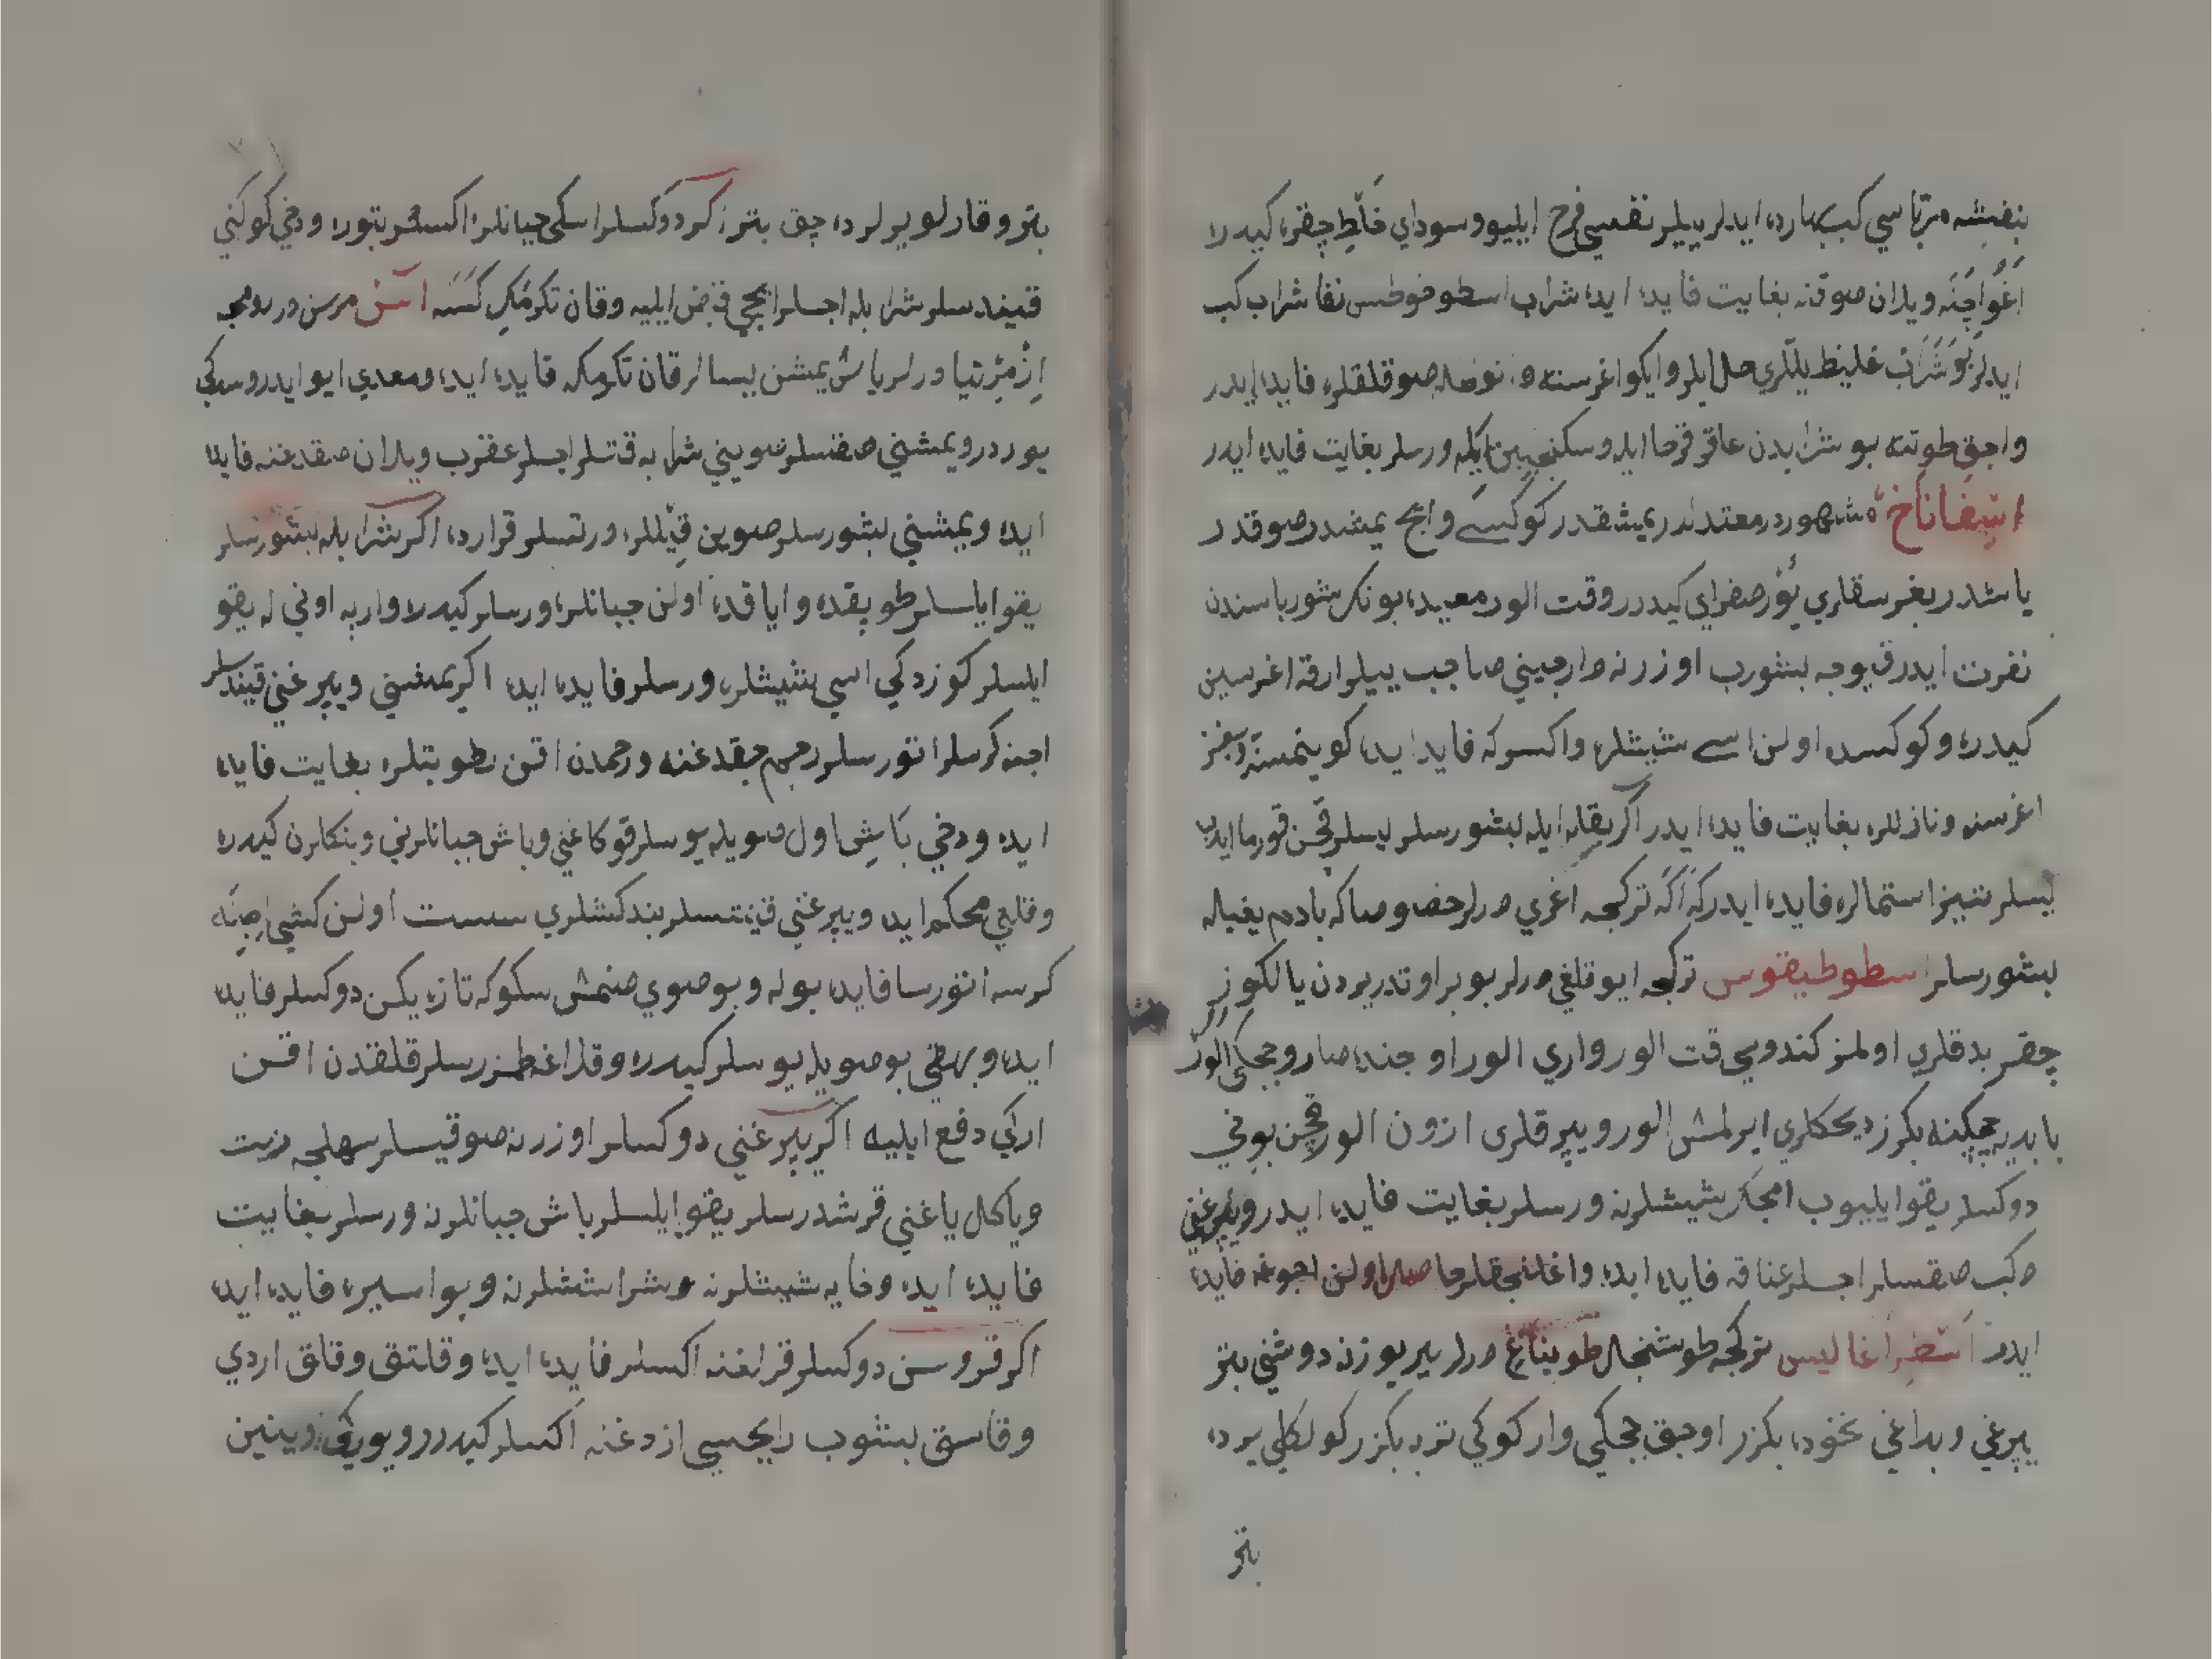 بنفشه مرباسي كب بهارده ايدلر ييلر نفسي فرح ايليو وسوداي خلطِ چقره كيدرلا
اَغُو اچنَه ويلان صوقنه بغايت فايده ايده شراب اسطوخوطس نفا شراب كب
ايدلر بوشَرَابْ غليظ يللري حل ايلر وايكو اغرسنه و صوقلقلره فايده ايدر
واجق طوتنه بو شرابدن عاقر قرحا ايله وسكنجبين ايله ورسلر بغايت فايده ايدر
اسِفَانَاخ مشهوردر معتدلدر يمشقدر كوكسى وايچ يمشدر صوقدر
ياشدر بغرسقلري يُوُر صفراي كيدرر وقت الور معيده بونك شورباسندن
نفرت ايدر قيوجه بشورب اوزرنه دارجيني صاجب ييلر ارقه اغرسين
كيدره وكوكسده اولن اسى شيشلره واكسوكه فايده ايده كوينمسنه وبغز
اغرسنه ونازللره بغايت فايده ايدر اكر بقله ايله بشورسلر يسلر قچن قورما ايدب
يسلر سيز استمالره فايده ايدر كه اكَه تركجه اغري درلر خصوصاكه بادم يغيله
بشورسلر اسطوطيقوس تركجه ايو قلغي درلر بو بر اوتدر يردن يالكوز
چقر بدقلري اولمز كندويى قت الور واري الور اوجنده صارو چچكى الور
بابديه چچكينه بكزر ديحكلري ايرلمش الور ويپرقلرى ازون الور قچن بوني
دوكسلر يقو ايليوب امجك شيشلرنه ورسلر بغايت فايده ايدر ويپرغني
دكب صقسلر اجسلر عناقه فايده ايده واغلنجقلرجا صرعلو اولن اجوغه فايده
ايدر اَسْطِرَاغاليس تركجه طوشنجال طوبناغ درلر ير يوزنه دوشني بتر
يپرغي وبداغي نخوده بكزر اوجق چچكى وار كوكى تربه بكزر كولكلي يرده
بتر
بتر وقارلو يرلرده چق بتر اكر دوكسلر اسكى چبانلره اكسلر بتوره ودخي كوكني
قيندسلر شراب بله اجسلر ايچي قبض ايليه وقان تكرمكِ كَسَه اسّ مرسن درر رومجه
اِزمِرتيا درلر ياش يمشن يسالر قان تكرمكه فايده ايده ومعدي ايو ايدر وسدكى
يوردر ويمشني صقسلر صويني شراب به قتسلر اجسلر عقرب ويلان صقدغنه فايده
ايده ويمشني بشورسلر صوين قِيللره ورتسلر قرارده اكر شراب بله بشورسلر
يقو اياسلر طوبقده واياقده اولن چبانلره ورسلر كيدرلا واربه اوني له يقو
ايلسلر كوزدكي اسي شيشلره ورسلر فايده ايده اكر يمشني ويپرغني قيندسلر
اچنه كرسلر اتورسلر رحم چقدغنه ورحمدن اقن رطوبتلره بغايت فايده
ايده ودخي بَاشِ اول صويله يوسلر قوكاغني وباش چبانلرني وبنكلرن كيدره
وقلني محكم ايده ويپرغني قينتسلر بندكشلري سست اولن كشي اچنَه
كرسه اتورسا فايده بوله وبو صوي صنمش سكوكه تازه يكن دوكسلر فايده
ايده وبهقي بو صويله يوسلر كيدره وقلاغه طمزرسلر قلقدن اقن
اركي دفع ايليه اكر يپرغني دوكسلر اوزرنه صو قيسلر سهلجه زيت
وياكل ياغني قرشدرسلر يقو ايلسلر باش چبانلرنه ورسلر بغايت
فايده ايده وخايه شيشلرنه وشرا شيشلرنه وبواسيره فايده ايده
اكر قروسن دوكسلر قرلغنه اكسلر فايده ايده وقلتق وقاسق اردي
وقاسق بشوب رايحسي ازدغنه اكسلر كيدرر ويوركي وينين